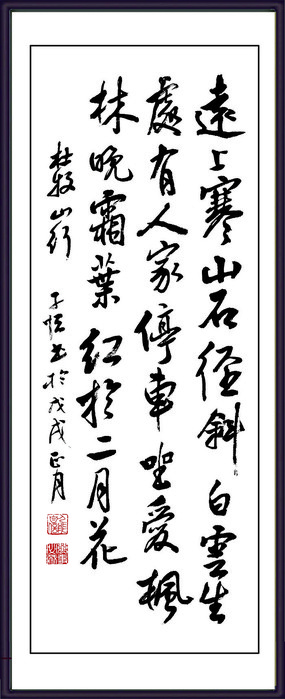 遠上寒山石徑斜白雲生
處有人家停車坐愛楓
林晚霜葉紅於二月花
杜牧山行 子 書於戊戌正月